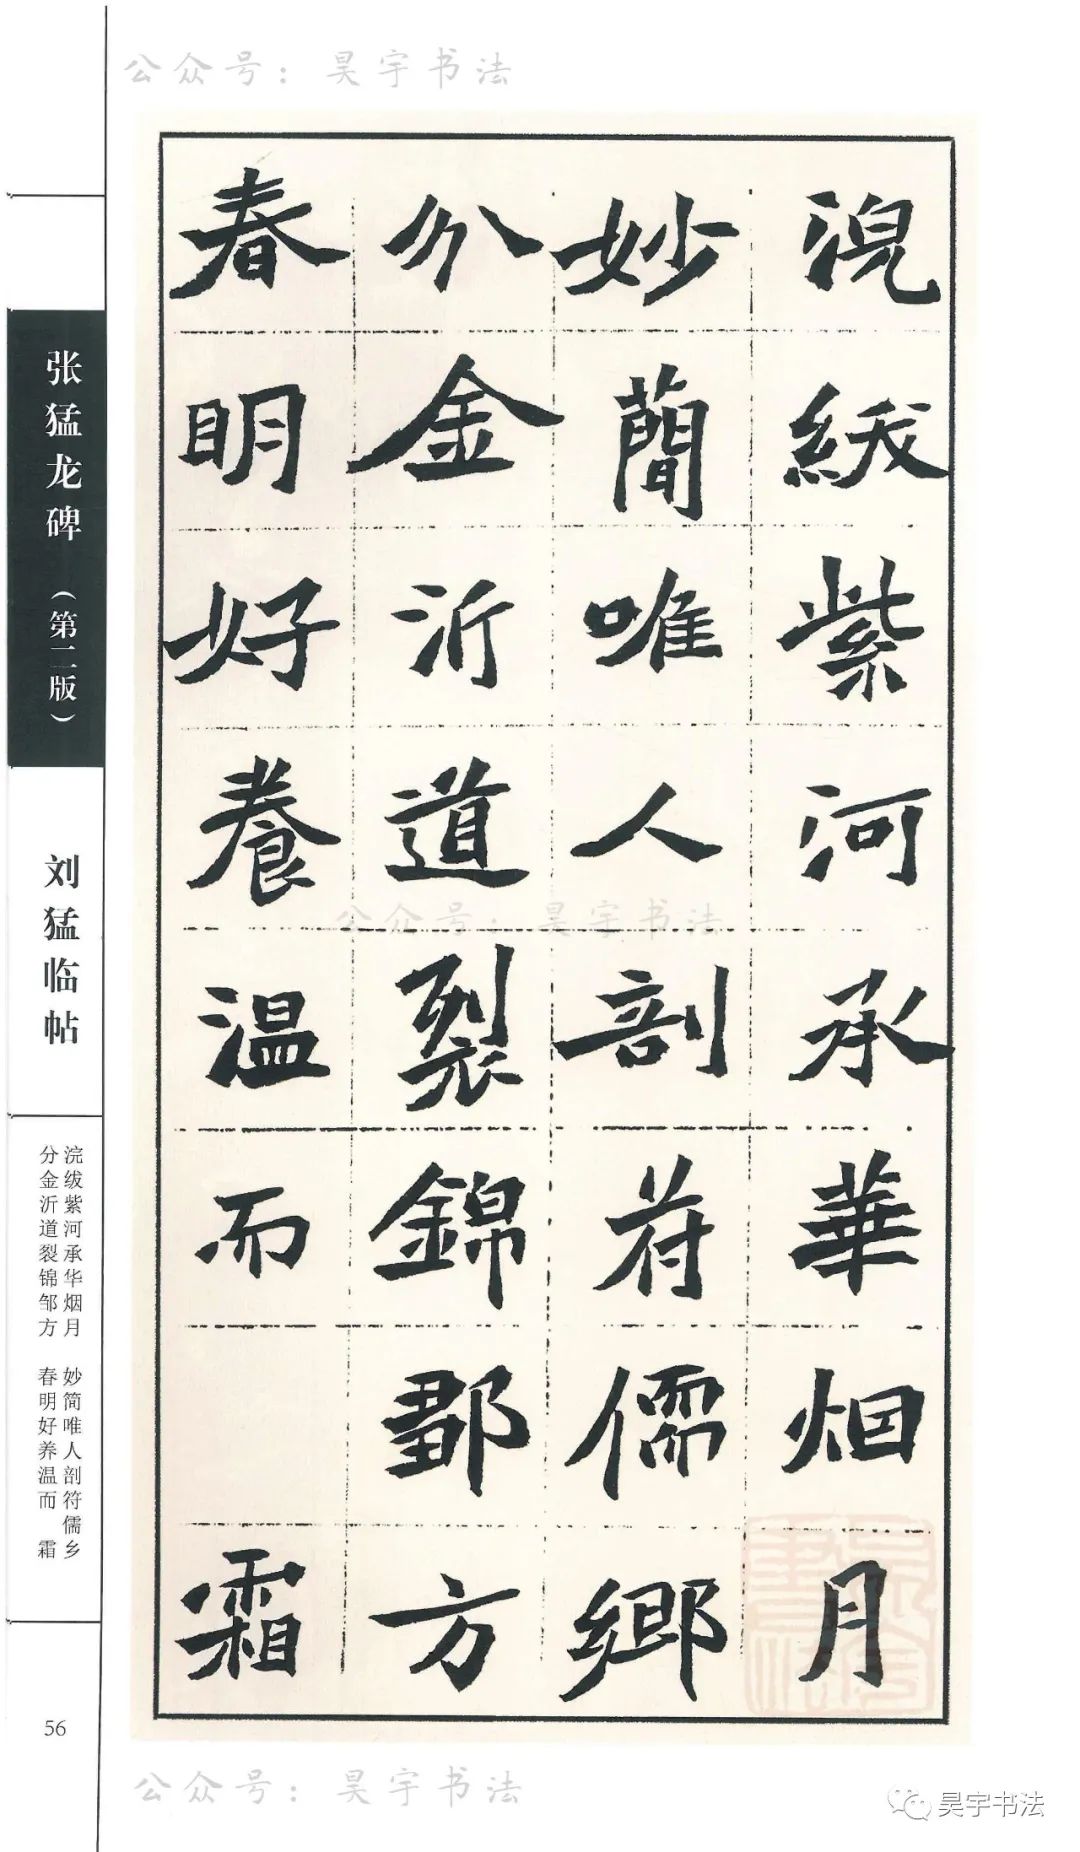 公众号：昊宇书法
浼紱紫河承華烟月
妙簡唯人剖符儒鄉
分金沂道裂錦鄒方
春明好養溫而霜
公众号：昊宇书法
张猛龙碑（第二版）
刘猛临帖
浣绂紫河承华烟月 妙简唯人剖符儒乡
分金沂道裂锦邹方 春明好养温而 霜
56
公众号：昊宇书法
昊宇书法